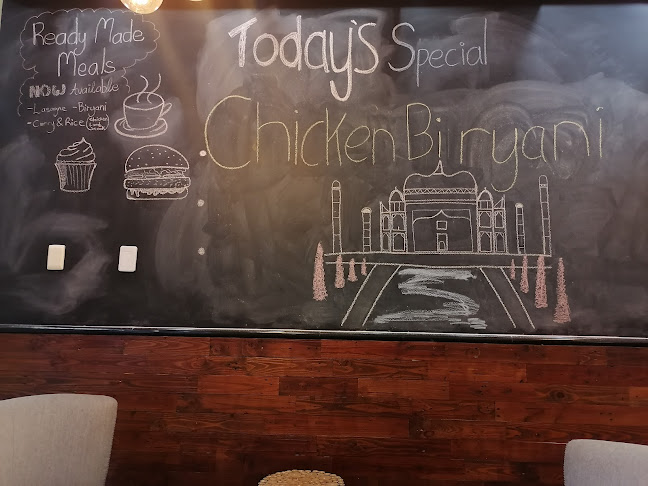 Ready Made
Meals
NOW Available
-Lasagne -Biryani
-Curry & Rice
Today's Special
Chicken Biryani